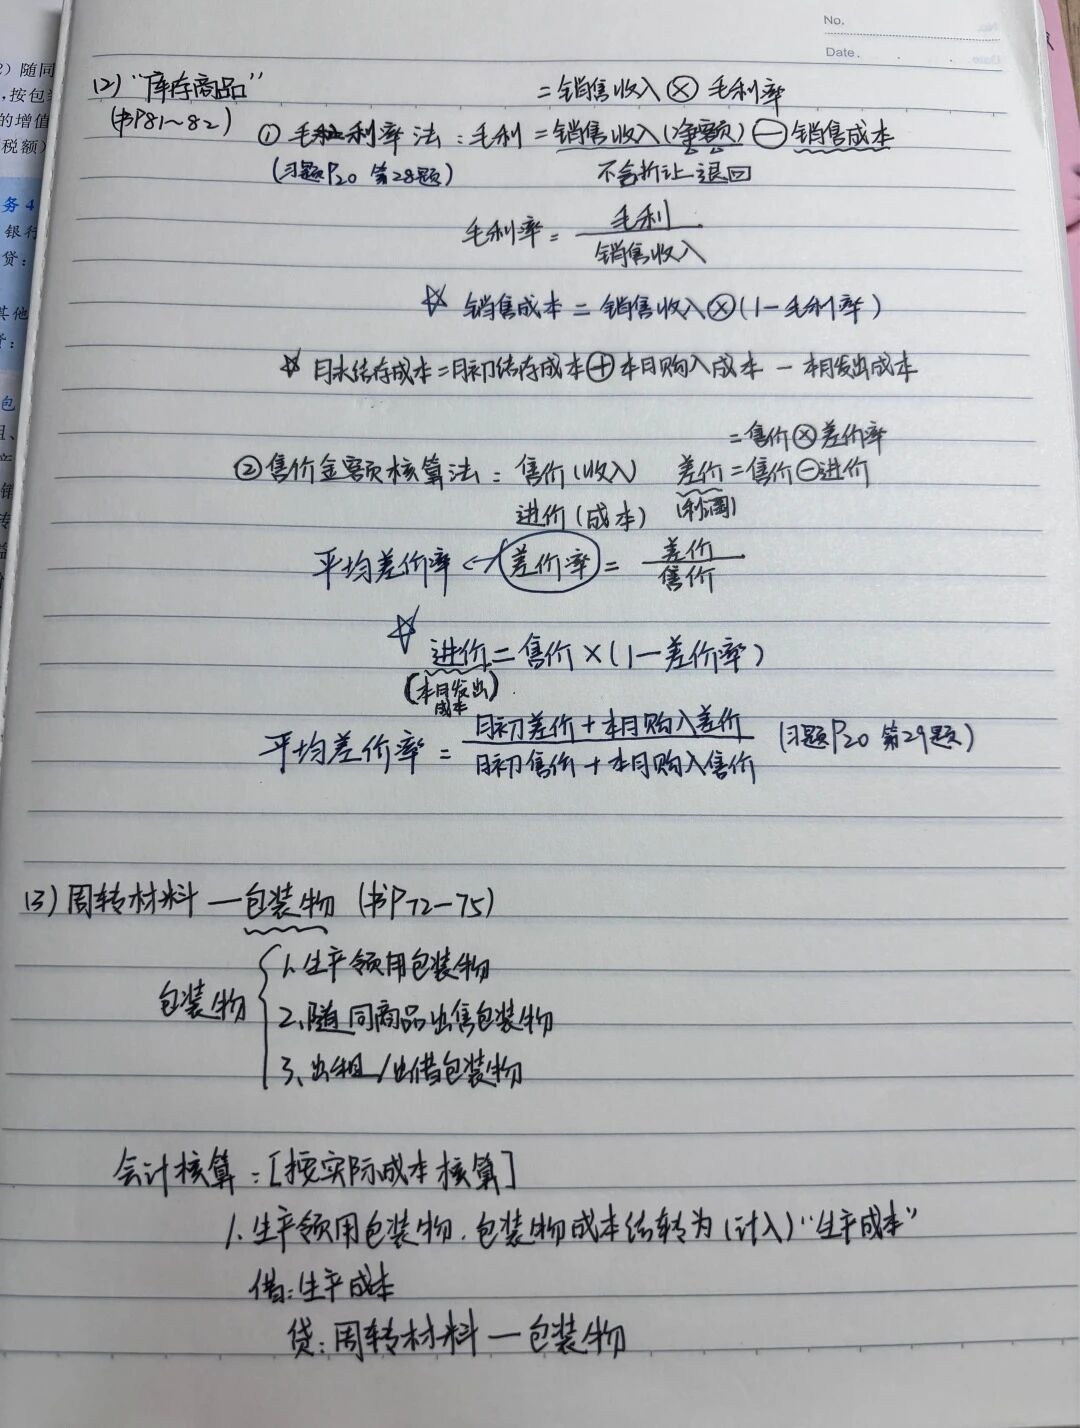 No.
Date.
2）随同
，按包
的增值
税额）
务4
银行
贷：
其他
包
(2)“库存商品” =销售收入⊗毛利率
(书P81~82) ①毛利率法：毛利=销售收入(净额)⊖销售成本
(习题P20 第28题) 不含折让、退回
毛利率=毛利/销售收入
☆ 销售成本=销售收入⊗(1-毛利率)
☆ 月末结存成本=月初结存成本⊕本月购入成本-本月发出成本
=售价⊗差价率
②售价金额核算法：售价(收入) 差价=售价⊖进价
进价(成本) (利润)
平均差价率←差价率=差价/售价
☆ 进价=售价×(1-差价率)
(本月发出成本)
平均差价率=月初差价+本月购入差价/月初售价+本月购入售价 (习题P20 第29题)
(3)周转材料—包装物 (书P72-75)
包装物
1、生产领用包装物
2、随同商品出售包装物
3、出租/出借包装物
会计核算：[按实际成本核算]
1、生产领用包装物，包装物成本结转为(计入)“生产成本”
借：生产成本
贷：周转材料—包装物